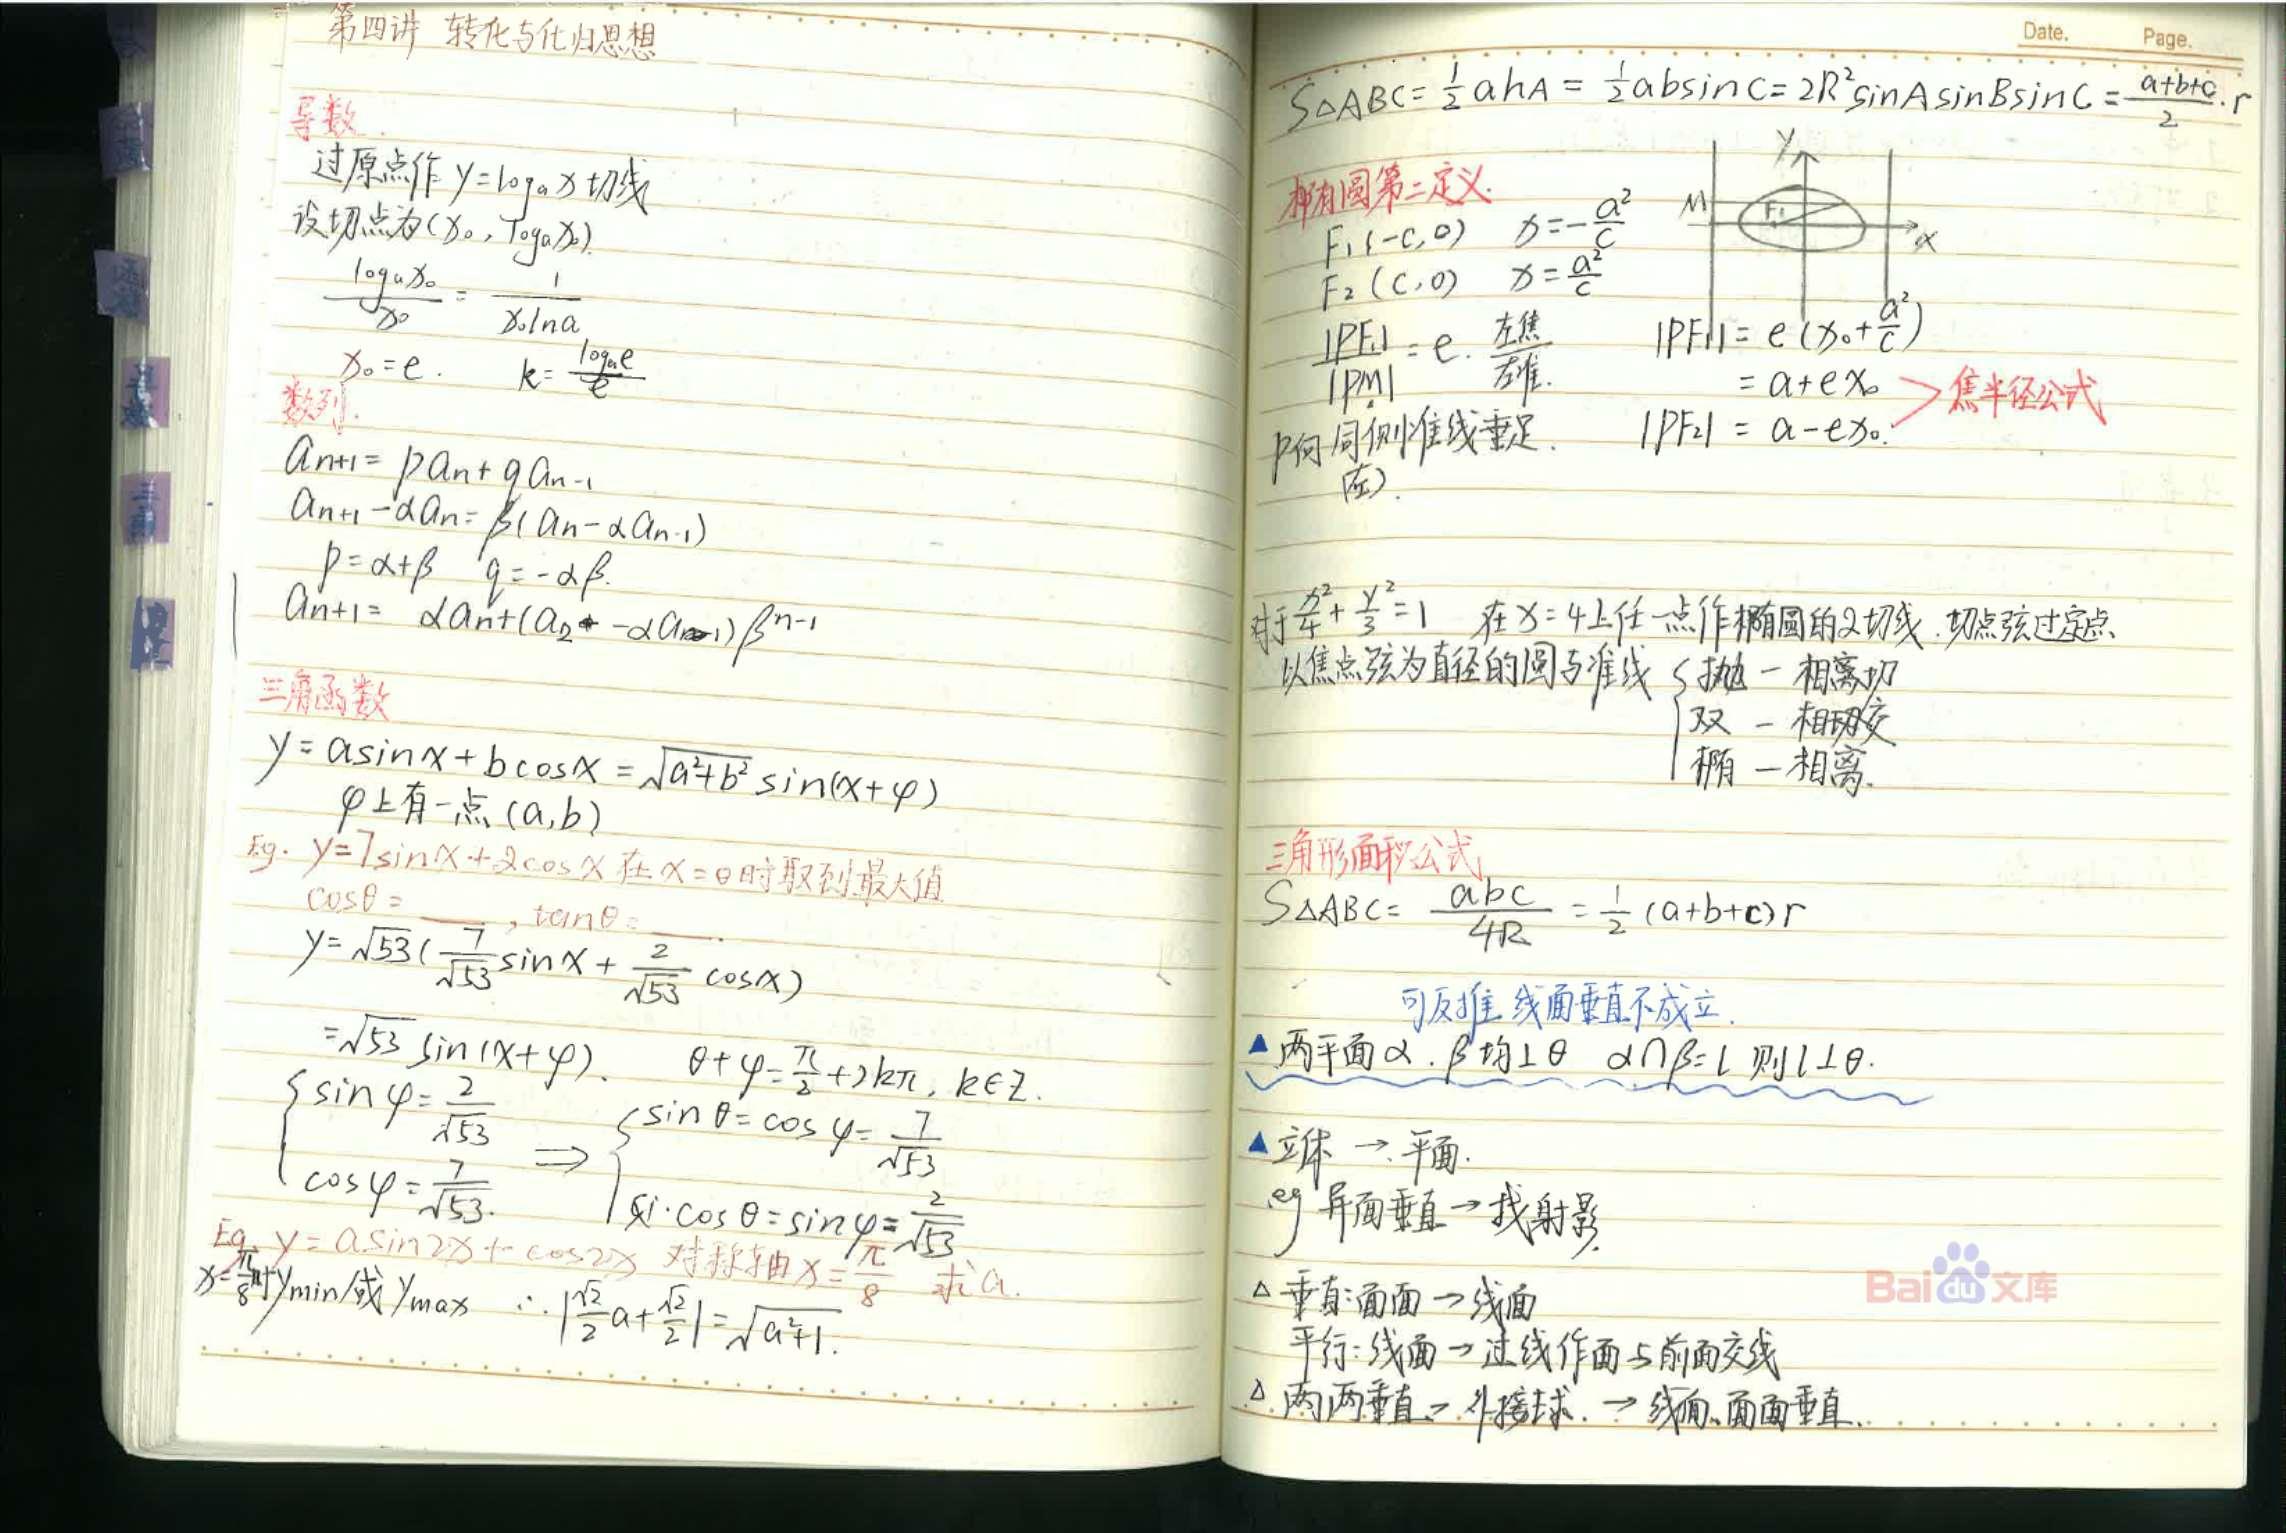 第四讲 转化与化归思想
导数.
过原点作 y=logₐx 切线
设切点为(x₀, logₐx₀)
logₐx₀/x₀ = 1/(x₀lna)
x₀=e. k=logₐe/e
数列.
aₙ₊₁=paₙ+qaₙ₋₁
aₙ₊₁-αaₙ=β(aₙ-αaₙ₋₁)
p=α+β q=-αβ.
aₙ₊₁= αaₙ+(a₂-αa₁)βⁿ⁻¹
三角函数
y=asinx+bcosx=√(a²+b²) sin(x+φ)
φ上有一点(a,b)
Eg. y=7sinx+2cosx 在x=θ时取到最大值
cosθ=____, tanθ=____.
y=√53(7/√53 sinx + 2/√53 cosx)
=√53 sin(x+φ). θ+φ=π/2+2kπ, k∈Z.
{sinφ=2/√53 ⇒ {sinθ=cosφ=7/√53
cosφ=7/√53. cosθ=sinφ=2/√53
Eg. y=asin2x+cos2x 对称轴x=π/8 求a.
x=π/8时ymin/或ymax ∴|√2/2 a+√2/2|=√(a²+1).
Date. Page.
S△ABC=1/2 ahA=1/2 absinC=2R²sinAsinBsinC=(a+b+c)/2·r
椭圆第二定义.
F₁(-c,0) x=-a²/c
F₂(c,0) x=a²/c
y
M
F₁
x
|PF₁|/|PM|=e. 左焦/左准.
|PF₁|=e(x₀+a²/c)
=a+ex₀
|PF₂|=a-ex₀.
>焦半径公式
P向同侧准线垂足.
(左).
对于x²/4+y²/3=1 在x=4上任一点作椭圆的2切线.切点弦过定点.
以焦点弦为直径的圆与准线{抛-相切
双-相交
椭-相离.
三角形面积公式
S△ABC=abc/4R=1/2(a+b+c)r
可反推 线面垂直不成立.
▲两平面α.β均⊥θ α∩β=l 则l⊥θ.
▲立体→平面.
eg 异面垂直→找射影.
△垂直:面面→线面
平行:线面→过线作面与前面交线
△两两垂直→外接球.→线面、面面垂直.
Bai du 文库